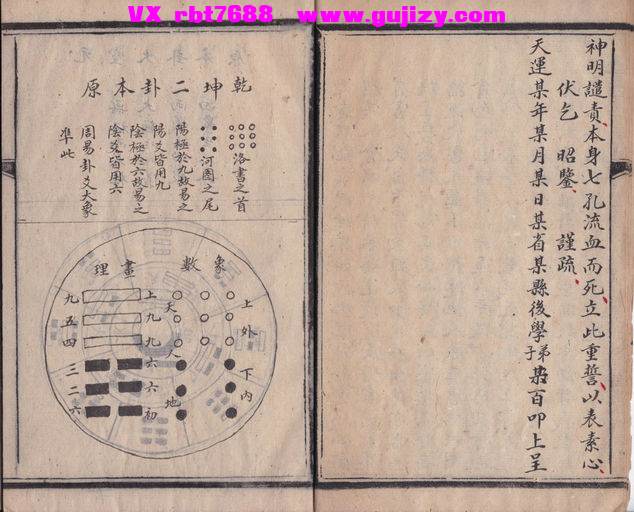 VX rbt7688 www.gujizy.com
神明譴責本身七孔流血而死立此重誓以表素心
伏乞 昭鑒 謹疏
天運某年某月某日某省某縣後學弟子某百叩上呈
乾坤二卦本原
洛書之首
河圖之尾
陽極於九故易之
陽爻皆用九
陰極於六故易之
陰爻皆用六
周易卦爻大象
準此
象數
畫理
上外
下內
天
人
地
上九
九五
九四
六三
六二
初六